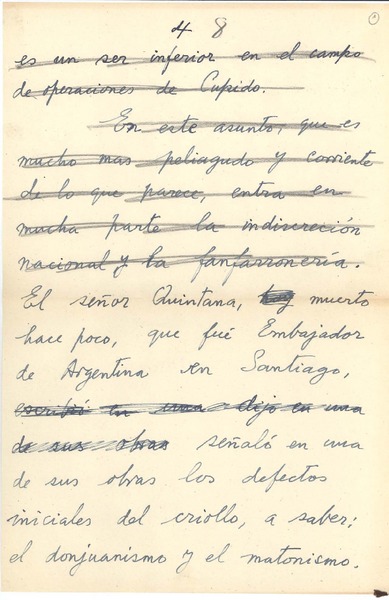 4 8
es un ser inferior en el campo
de operaciones de Cupido.
En este asunto, que es
mucho mas peliagudo y corriente
de lo que parece, entra en
mucha parte la indiscreción
nacional y la fanfarronería.
El señor Quintana, hoy muerto
hace poco, que fué Embajador
de Argentina en Santiago,
escribió en una dijo en una
de sus obras señaló en una
de sus obras los defectos
iniciales del criollo, a saber:
el donjuanismo y el matonismo.